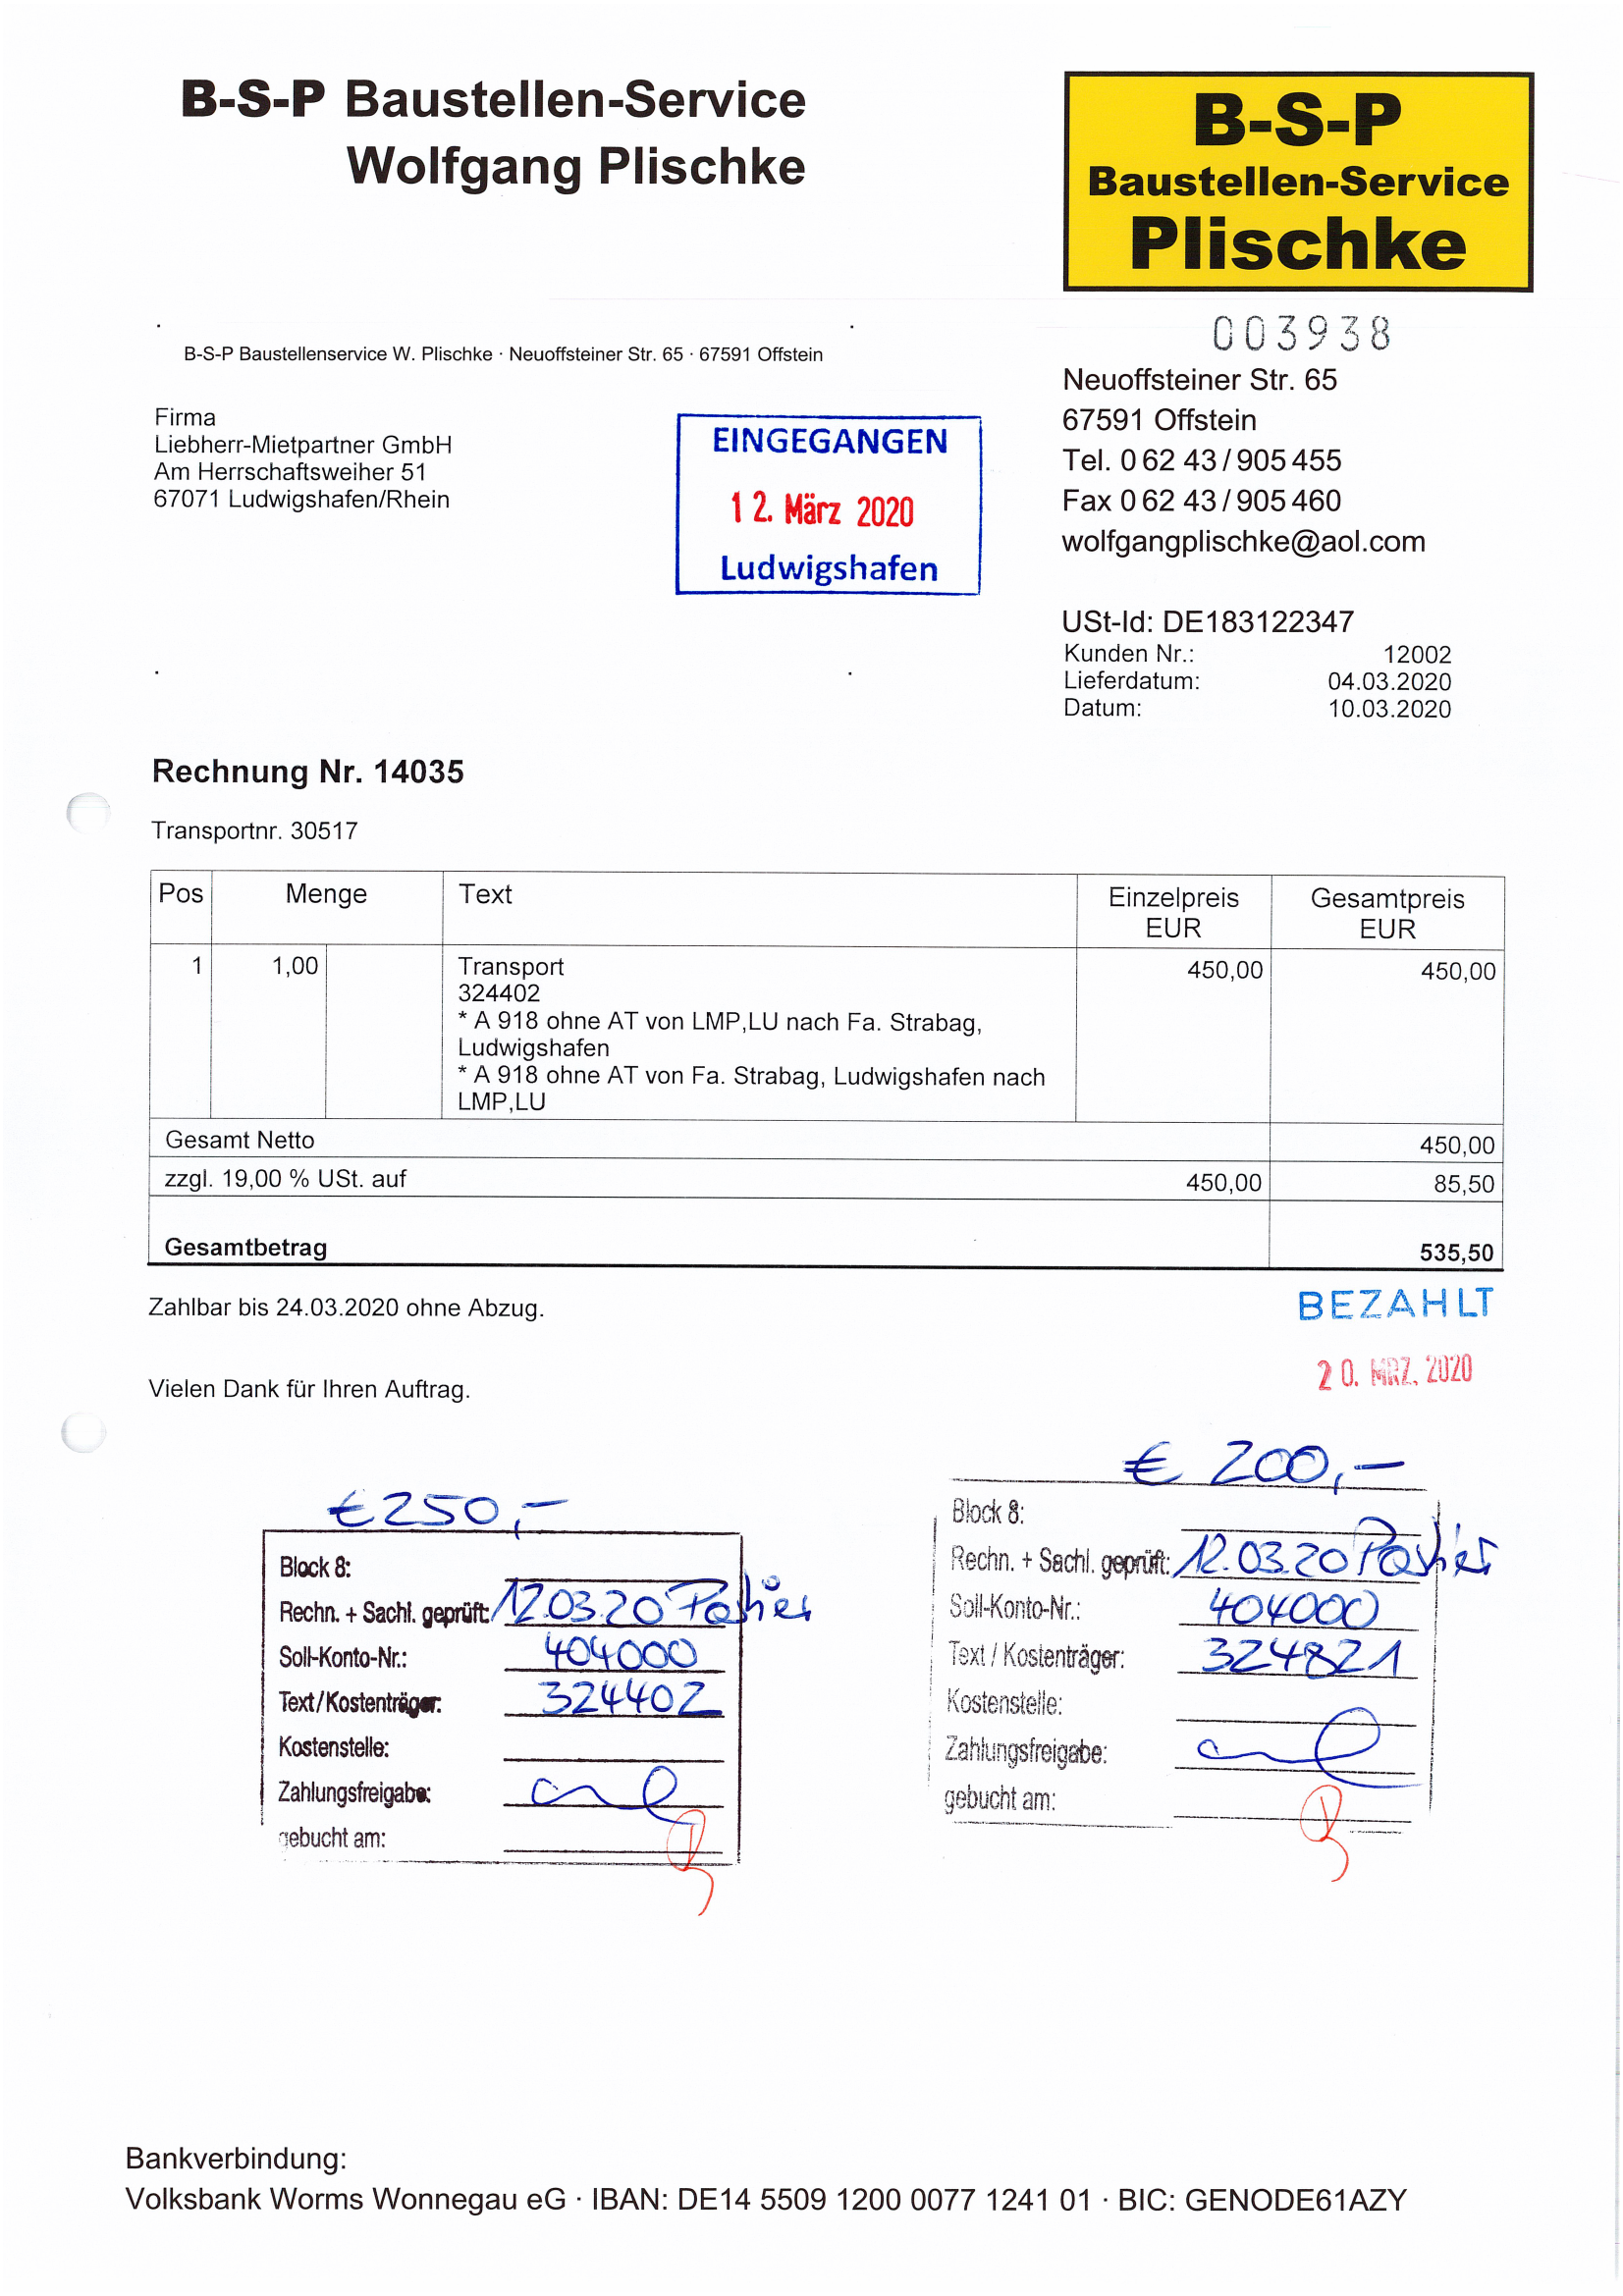 B-S-P Baustellen-Service
Wolfgang Plischke
B-S-P
Baustellen-Service
Plischke
003938
B-S-P Baustellenservice W. Plischke · Neuoffsteiner Str. 65 · 67591 Offstein
Firma
Liebherr-Mietpartner GmbH
Am Herrschaftsweiher 51
67071 Ludwigshafen/Rhein
EINGEGANGEN
12. März 2020
Ludwigshafen
Neuoffsteiner Str. 65
67591 Offstein
Tel. 0 62 43 / 905 455
Fax 0 62 43 / 905 460
wolfgangplischke@aol.com
USt-Id: DE183122347
Kunden Nr.: 12002
Lieferdatum: 04.03.2020
Datum: 10.03.2020
Rechnung Nr. 14035
Transportnr. 30517
Pos Menge Text Einzelpreis Gesamtpreis
EUR EUR
1 1,00 Transport 450,00 450,00
324402
* A 918 ohne AT von LMP,LU nach Fa. Strabag,
Ludwigshafen
* A 918 ohne AT von Fa. Strabag, Ludwigshafen nach
LMP,LU
Gesamt Netto 450,00
zzgl. 19,00 % USt. auf 450,00 85,50
Gesamtbetrag 535,50
Zahlbar bis 24.03.2020 ohne Abzug.
BEZAHLT
20. MRZ. 2020
Vielen Dank für Ihren Auftrag.
€ 250,-
Block 8:
Rechn. + Sachl. geprüft: 12.03.20
Soll-Konto-Nr.: 404000
Text / Kostenträger: 324402
Kostenstelle:
Zahlungsfreigabe:
gebucht am:
€ 200,-
Block 8:
Rechn. + Sachl. geprüft: 12.03.20
Soll-Konto-Nr.: 404000
Text / Kostenträger: 324821
Kostenstelle:
Zahlungsfreigabe:
gebucht am:
Bankverbindung:
Volksbank Worms Wonnegau eG · IBAN: DE14 5509 1200 0077 1241 01 · BIC: GENODE61AZY